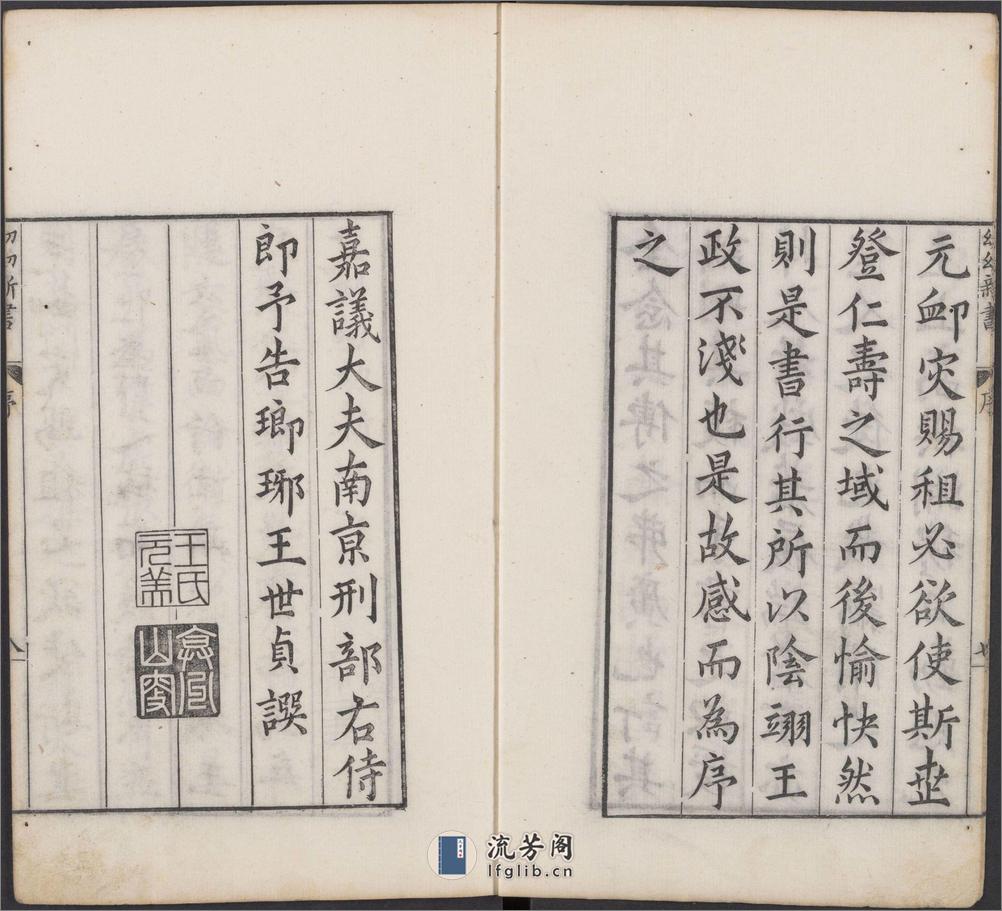 幼幼新書
序
七
元卹灾賜租必欲使斯世
登仁壽之域而後愉快然
則是書行其所以陰翊王
政不淺也是故感而為序
之
嘉議大夫南京刑部右侍
郎予告瑯琊王世貞撰
王氏
元美
幼幼新書
序
八
流芳阁
lfglib.cn